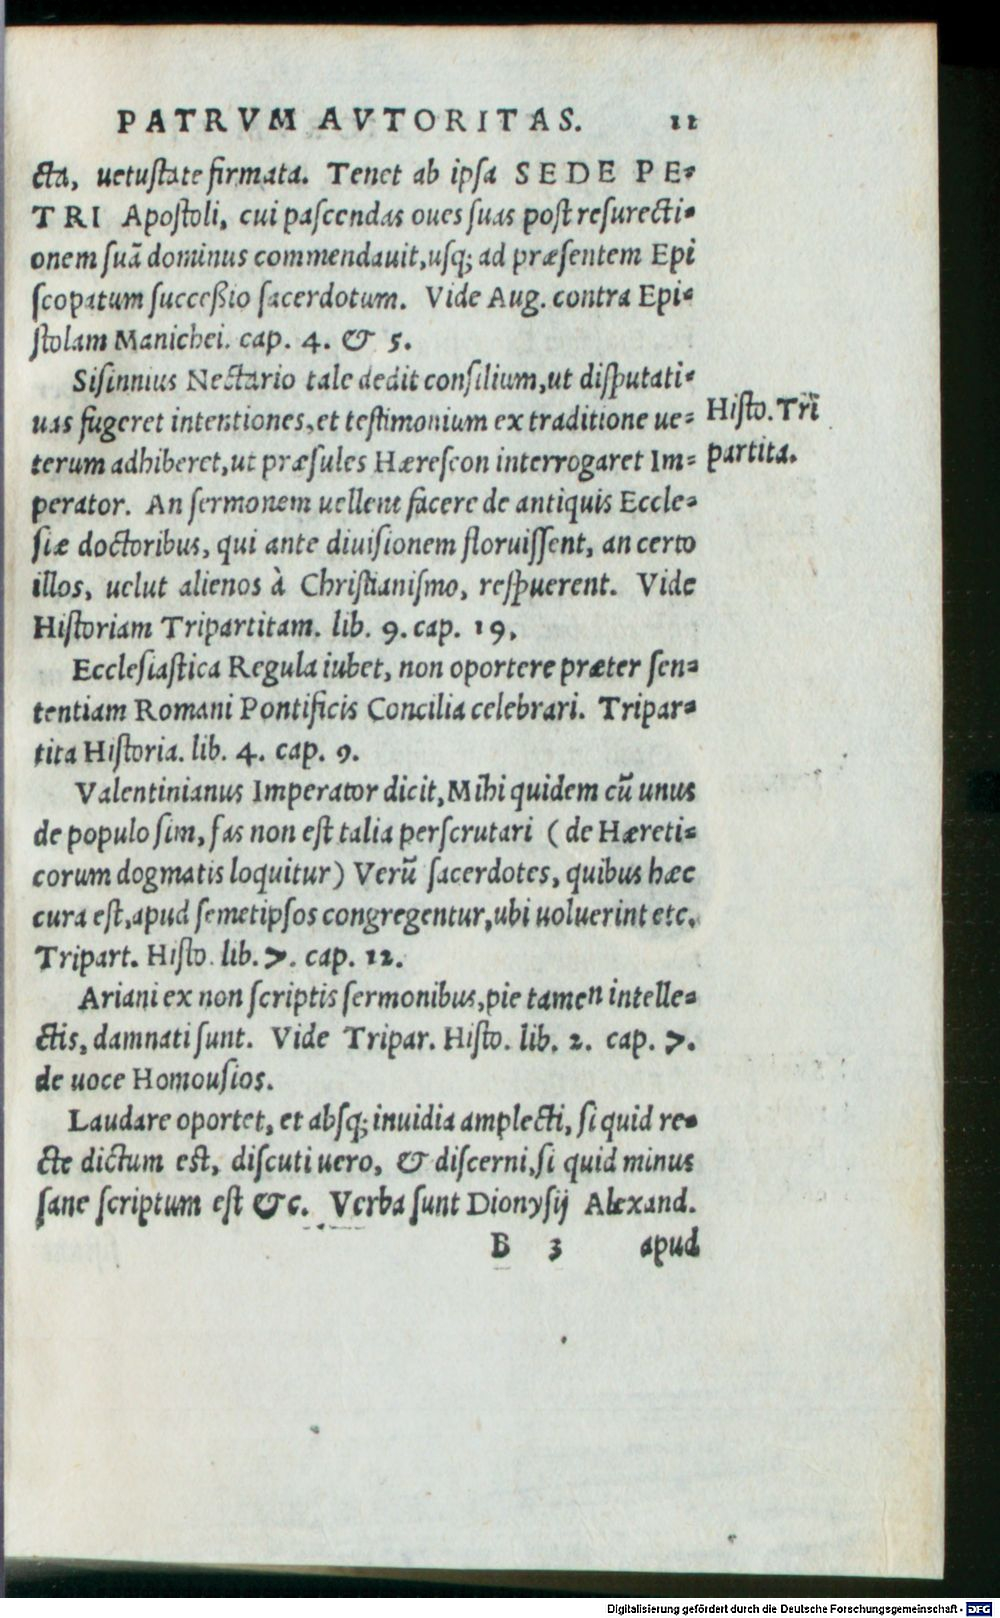 PATRVM AVTORITAS. 11
cta, uetustate firmata. Tenet ab ipsa SEDE PE-
TRI Apostoli, cui pascendas oues suas post resurecti-
onem suã dominus commendauit, usq; ad præsentem Epi
scopatum successio sacerdotum. Vide Aug. contra Epi-
stolam Manichei. cap. 4. & 5.
Sisinnius Nectario tale dedit consilium, ut disputati-
uas fugeret intentiones, et testimonium ex traditione ue=
terum adhiberet, ut præsules Hæreseon interrogaret Im=
perator. An sermonem uellent facere de antiquis Eccle-
siæ doctoribus, qui ante diuisionem floruissent, an certo
illos, uelut alienos à Christianismo, respuerent. Vide
Historiam Tripartitam. lib. 9. cap. 19.
Histo. Tri
partita.
Ecclesiastica Regula iubet, non oportere præter sen=
tentiam Romani Pontificis Concilia celebrari. Tripar=
tita Historia. lib. 4. cap. 9.
Valentinianus Imperator dicit, Mihi quidem cũ unus
de populo sim, fas non est talia perscrutari (de Hæreti=
corum dogmatis loquitur) Verũ sacerdotes, quibus hæc
cura est, apud semetipsos congregentur, ubi uoluerint etc.
Tripart. Histo. lib. 7. cap. 12.
Ariani ex non scriptis sermonibus, pie tamen intelle=
ctis, damnati sunt. Vide Tripar. Histo. lib. 2. cap. 7.
de uoce Homousios.
Laudare oportet, et absq; inuidia amplecti, si quid re-
cte dictum est, discuti uero, & discerni, si quid minus
sane scriptum est &c. Verba sunt Dionysij Alexand.
B 3 apud
Digitalisierung gefördert durch die Deutsche Forschungsgemeinschaft - DFG